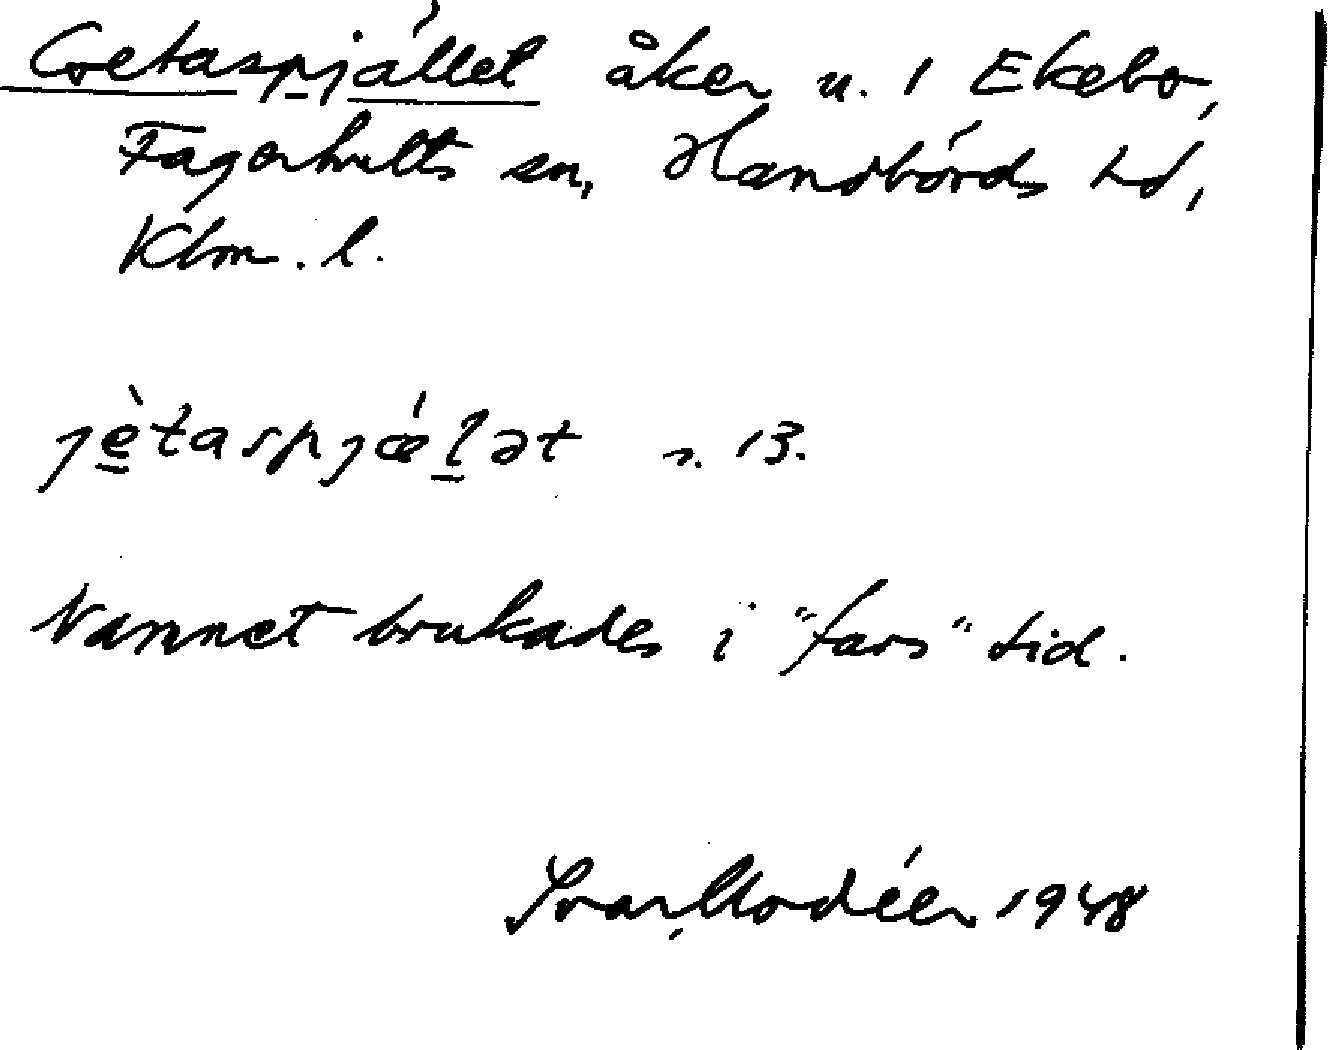 Getaspjället åker u. 1 Ekebo,
Fagerhults sn, Handbörds hd,
Klm. l.
jètaspjǽlət s. 13.
Namnet brukades i "fars" tid.
Ivar Modéer 1948